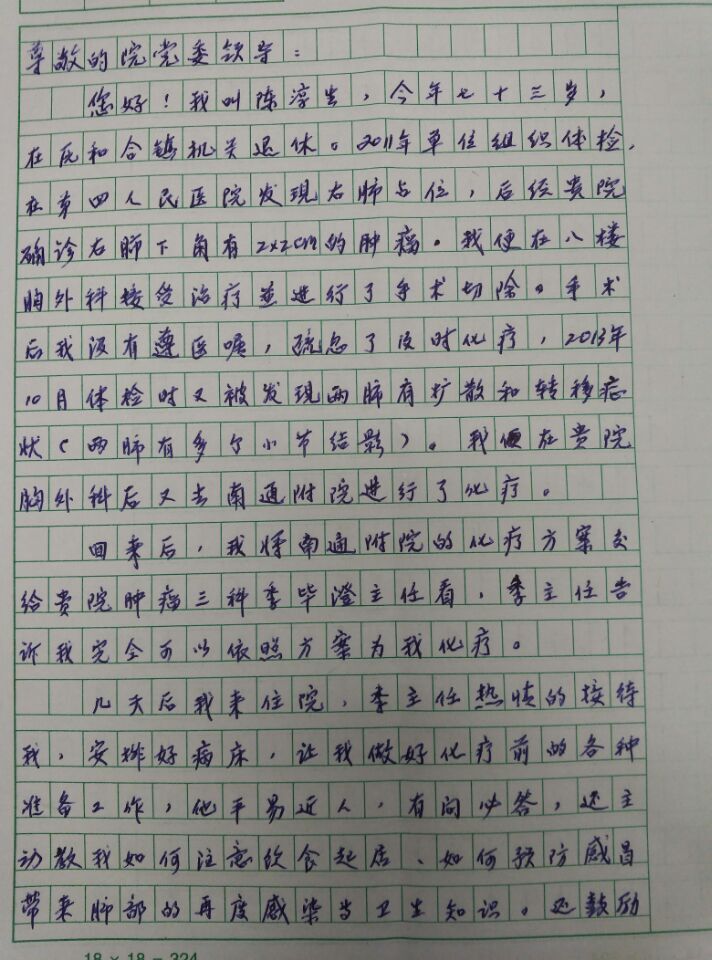 尊敬的院党委领导:
您好!我叫陈淳生,今年七十三岁,
在瓦和合镇机关退休。2011年单位组织体检,
在第四人民医院发现右肺占位,后经贵院
确诊右肺下角有2x2cm的肿瘤。我便在八楼
胸外科接受治疗並进行了手术切除。手术
后我没有遵医嘱,疏忽了及时化疗,2013年
10月体检时又被发现两肺有扩散和转移症
状(两肺有多个小节结影)。我便在贵院
胸外科后又去南通附院进行了化疗。
回来后,我将南通附院的化疗方案交
给贵院肿瘤三科季毕澄主任看,季主任告
诉我完全可以依照方案为我化疗。
几天后我来住院,季主任热情的接待
我,安排好病床,让我做好化疗前的各种
准备工作,他平易近人,有问必答,还主
动教我如何注意饮食起居、如何预防感冒
带来肺部的再度感染与卫生知识。还鼓励
18 × 18 = 324